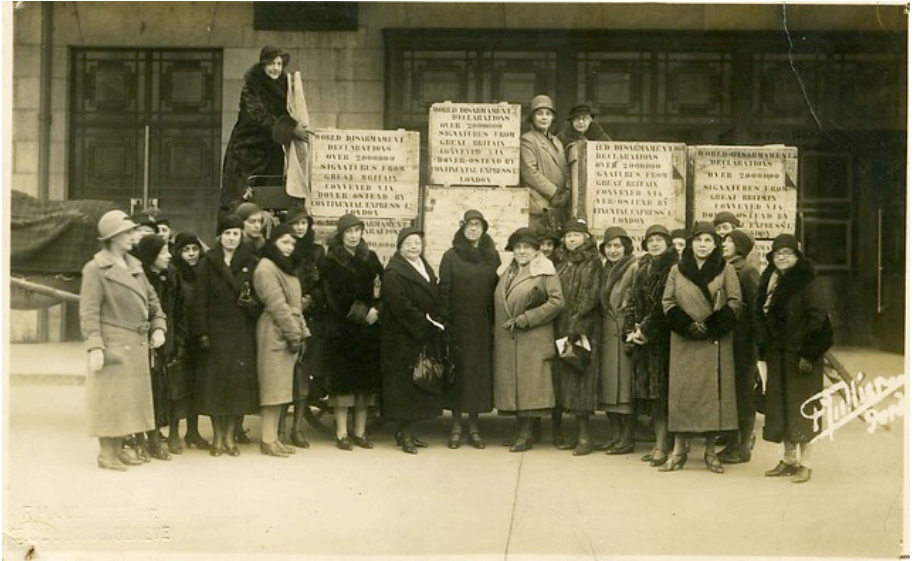 WORLD DISARMAMENT
DECLARATIONS
OVER 2,000,000
SIGNATURES FROM
GREAT BRITAIN
CONVEYED VIA
DOVER-OSTEND BY
CONTINENTAL EXPRESS LD
LONDON
WORLD DISARMAMENT
DECLARATIONS
OVER 2000000
SIGNATURES FROM
GREAT BRITAIN
CONVEYED VIA
DOVER-OSTEND BY
CONTINENTAL EXPRESS LD
LONDON
LD DISARMAMENT
DECLARATIONS
OVER 2000000
GNATURES FROM
GREAT BRITAIN
CONVEYED VIA
VER-OSTEND BY
ONTINENTAL EXPRESS LD
LONDON
WORLD DISARMAMENT
DECLARATIONS
OVER 2000000
SIGNATURES FROM
GREAT BRITAIN
CONVEYED VIA
DOVER-OSTEND BY
CONTINENTAL EXPRESS
LONDON